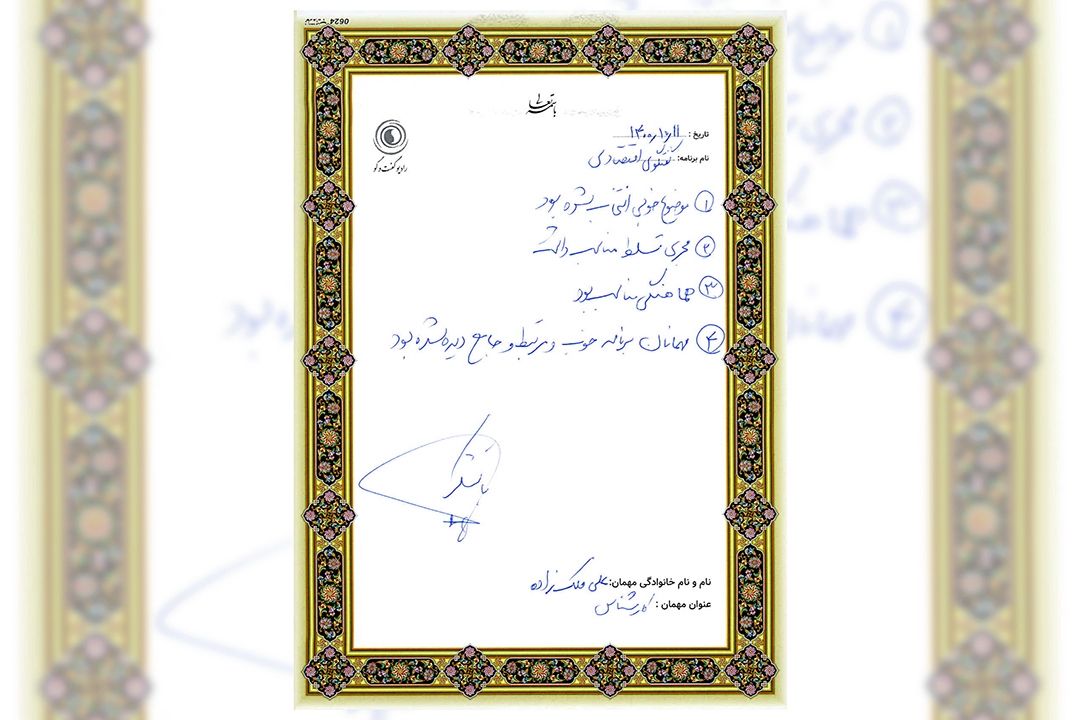 باسمه تعالی
رادیو گفت و گو
تاریخ :
نام برنامه: گفتگوی اقتصادی
۱ موضوع خوبی انتخاب شده بود
۲ مجری تسلط مناسب داشت
۳ هماهنگی مناسب بود
۴ مهمانان برنامه خوب و مرتبط و جامع دیده شده بود
با تشکر
نام و نام خانوادگی مهمان: علی ملک زاده
عنوان مهمان : کارشناس